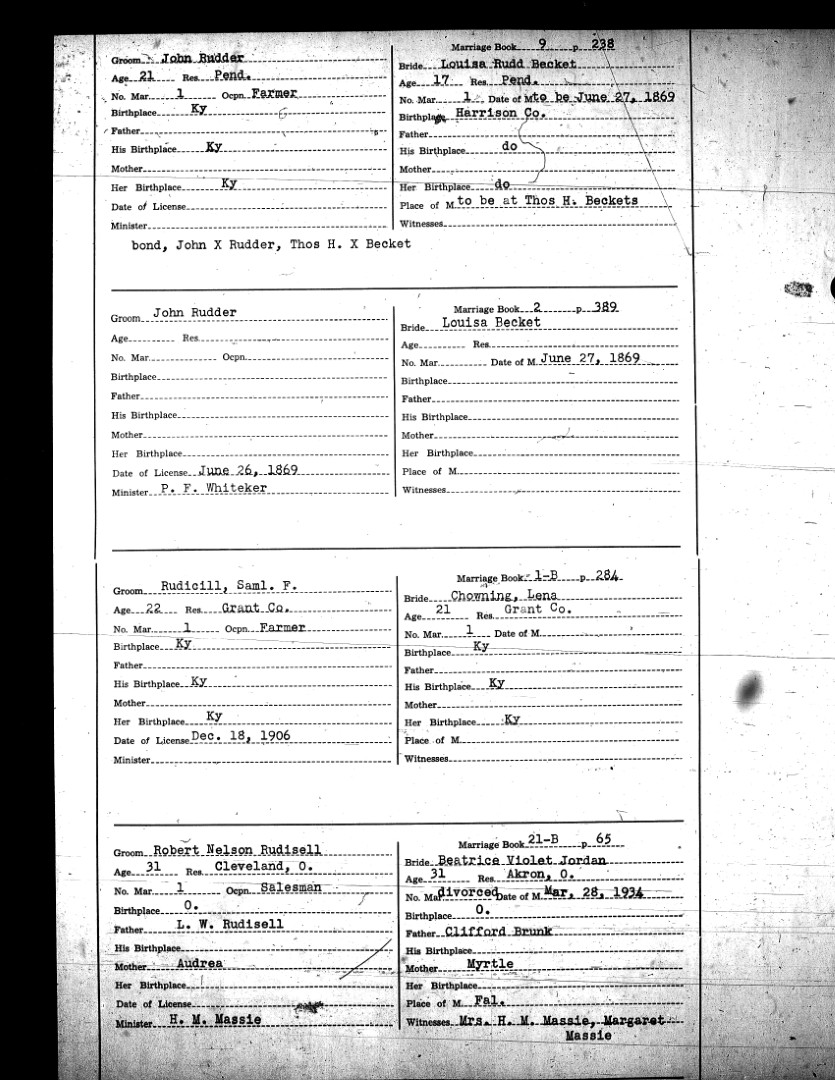 Marriage Book 9 p 238
Groom John Rudder
Age 21 Res. Pend.
No. Mar. 1 Ocpn. Farmer
Birthplace Ky
Father
His Birthplace Ky
Mother
Her Birthplace Ky
Date of License
Minister
Bride Louisa Rudd Becket
Age 17 Res. Pend.
No. Mar. 1 Date of M. to be June 27, 1869
Birthplace Harrison Co.
Father
His Birthplace do
Mother
Her Birthplace do
Place of M. to be at Thos H. Beckets
Witnesses
bond, John X Rudder, Thos H. X Becket
Marriage Book 2 p 389
Groom John Rudder
Age Res.
No. Mar. Ocpn.
Birthplace
Father
His Birthplace
Mother
Her Birthplace
Date of License June 26, 1869
Minister P. F. Whiteker
Bride Louisa Becket
Age Res.
No. Mar. Date of M. June 27, 1869
Birthplace
Father
His Birthplace
Mother
Her Birthplace
Place of M.
Witnesses
Marriage Book 1-B p 284
Groom Rudicill, Saml. F.
Age 22 Res. Grant Co.
No. Mar. 1 Ocpn. Farmer
Birthplace Ky
Father
His Birthplace Ky
Mother
Her Birthplace Ky
Date of License Dec. 18, 1906
Minister
Bride Chowning, Lena
Age 21 Res. Grant Co.
No. Mar. 1 Date of M.
Birthplace Ky
Father
His Birthplace Ky
Mother
Her Birthplace Ky
Place of M.
Witnesses
Marriage Book 21-B p 65
Groom Robert Nelson Rudisell
Age 31 Res. Cleveland, O.
No. Mar. 1 Ocpn. Salesman
Birthplace O.
Father L. W. Rudisell
His Birthplace
Mother Audrea
Her Birthplace
Date of License
Minister H. M. Massie
Bride Beatrice Violet Jordan
Age 31 Res. Akron, O.
No. Mar. divorced Date of M. Mar, 28, 1934
Birthplace O.
Father Clifford Brunk
His Birthplace
Mother Myrtle
Her Birthplace
Place of M. Fal.
Witnesses Mrs. H. M. Massie, Margaret
Massie